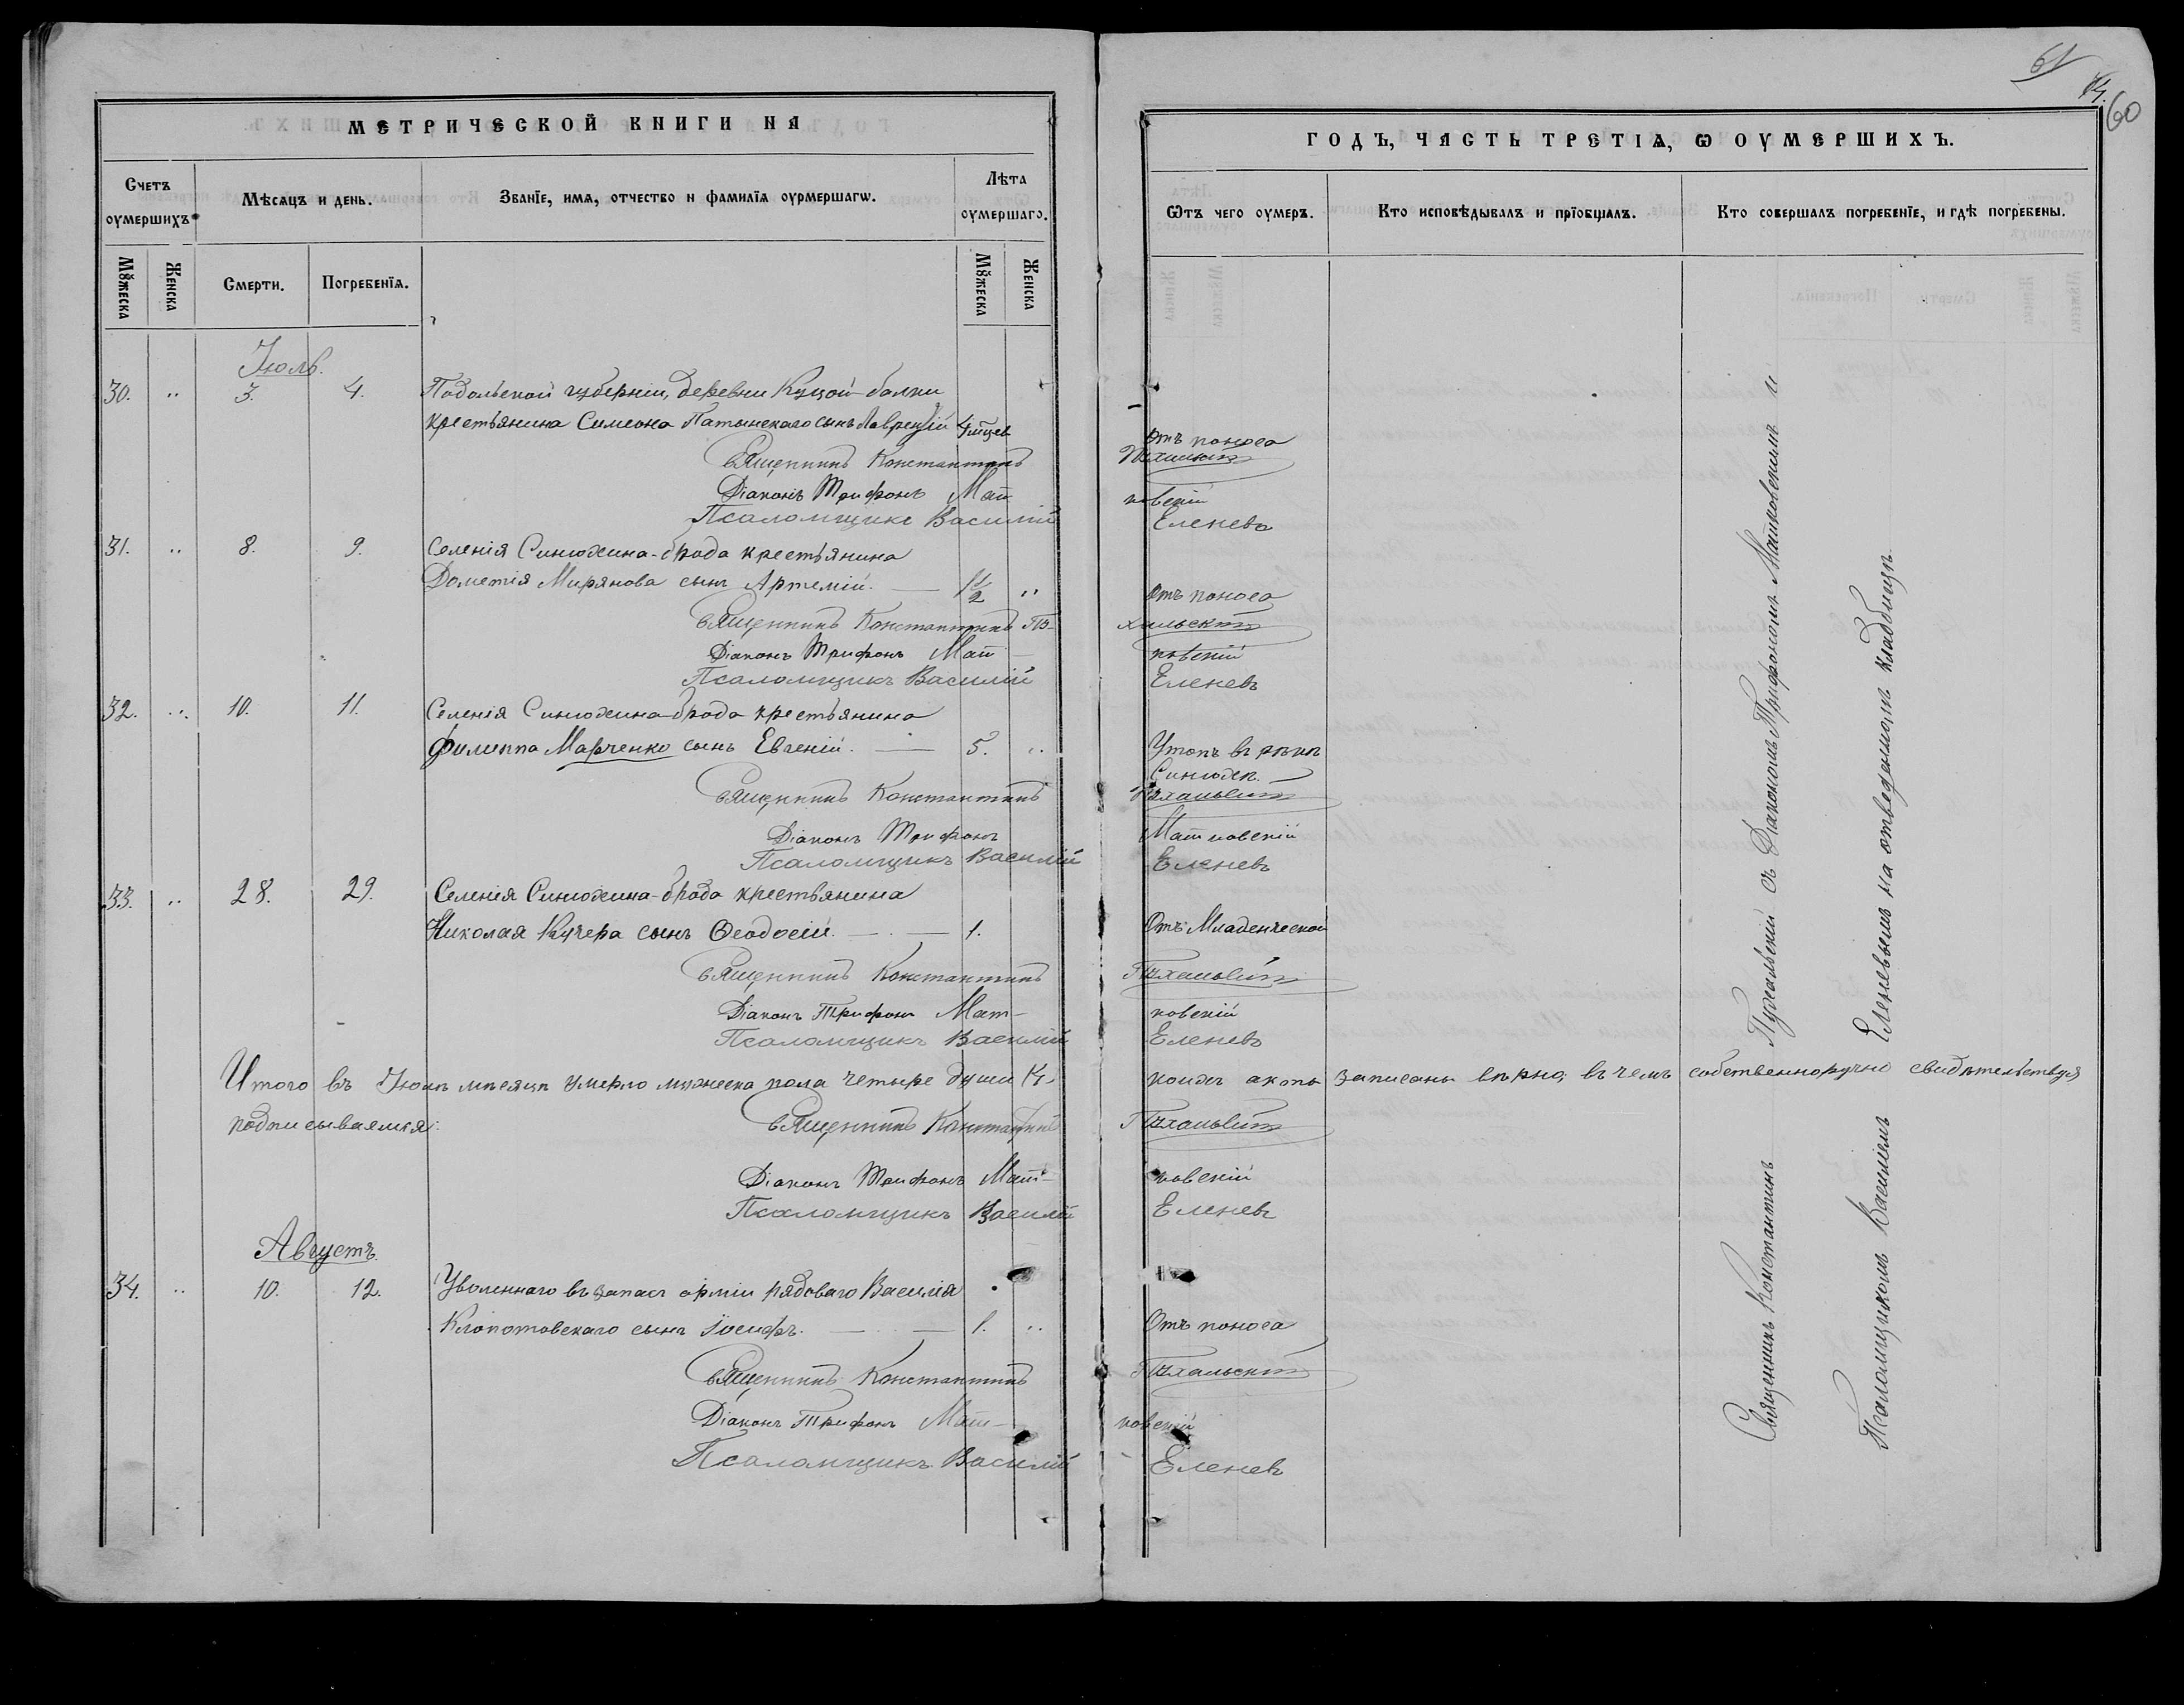 61
60
МЕТРИЧЕСКОЙ КНИГИ НА
ГОДЪ, ЧАСТЬ ТРЕТІѦ, Ѡ ОУМЕРШИХЪ.
Счетъ оумершихъ
Мѣсѧцъ и день.
Званїе, имѧ, отчество и фамилїѧ оурмершагѡ.
Лѣта оумершаго.
Ѿтъ чего оумеръ.
Кто исповѣдывалъ и прїобщалъ.
Кто совершалъ погребенїе, и гдѣ погребены.
Мꙋжеска
Женска
Смерти.
Погребенїѧ.
Мꙋжеска
Женска
Іюль.
30. „ 3. 4. Подольской губерніи, деревни Куцой-балки
крестьянина Симеона сынъ Лаврентій 4 мѣсяц Отъ поноса
Священникъ Константинъ
Діаконъ Трифонъ Мат ковскій
Псаломщикъ Василій Еленевъ
31. „ 8. 9. Селенія Синюхина-брода крестьянина
Дометія Мирянова сынъ Артемій. — 1½ „ Отъ поноса
Священникъ Константинъ
Діаконъ Трифонъ Мат— ковскій
Псаломщикъ Василій Еленевъ
32. „ 10. 11. Селенія Синюхина-брода крестьянина
Филиппа Марченко сынъ Евгеній. — 5. „ Утопъ въ рѣкѣ
Синюхѣ.
Священникъ Константинъ
Діаконъ Трифонъ Матковскій
Псаломщикъ Василій Еленевъ
33. „ 28. 29. Селенія Синюхина-брода крестьянина
Николая Кучера сынъ Ѳеодосій. — 1. Отъ Младенческой
Священникъ Константинъ
Діаконъ Трифонъ Мат— ковскій
Псаломщикъ Василій Еленевъ
Итого въ Іюлѣ мѣсяцѣ умерло мужеска пола четыре души коихъ акты записаны вѣрно, въ чемъ собственноручно свидѣтельствуя
подписываемся:
Священникъ Константинъ
Діаконъ Трифонъ Мат— ковскій
Псаломщикъ Василій Еленевъ
Августъ.
34. „ 10. 12. Уволеннаго въ запасъ арміи рядоваго Василія
Клопотовскаго сынъ Іосифъ. — 1. „ Отъ поноса
Священникъ Константинъ
Діаконъ Трифонъ Мат— ковскій
Псаломщикъ Василій Еленевъ
Священникъ Константинъ съ Діакономъ Трифономъ Матковскимъ и
Псаломщикомъ Василіемъ Еленевымъ на отведенномъ кладбищѣ